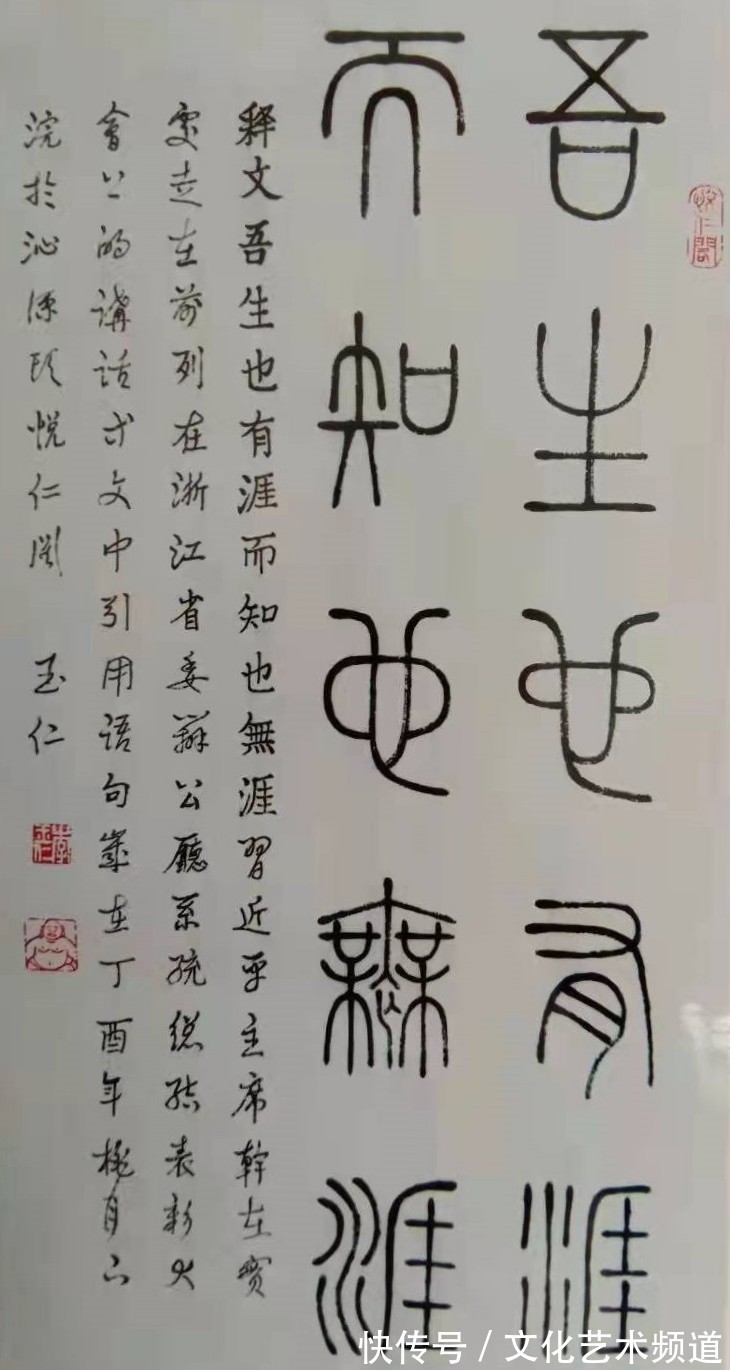 吾生也有涯
而知也無涯
釋文吾生也有涯而知也無涯習近平主席幹在實
處走在前列在浙江省委辦公廳系統總結表彰大
會上的講話中文中引用語句歲在丁酉年桃月下
浣於沁源
悅仁閣
玉仁
悅仁閣
李玉仁
快传号 / 文化艺术频道